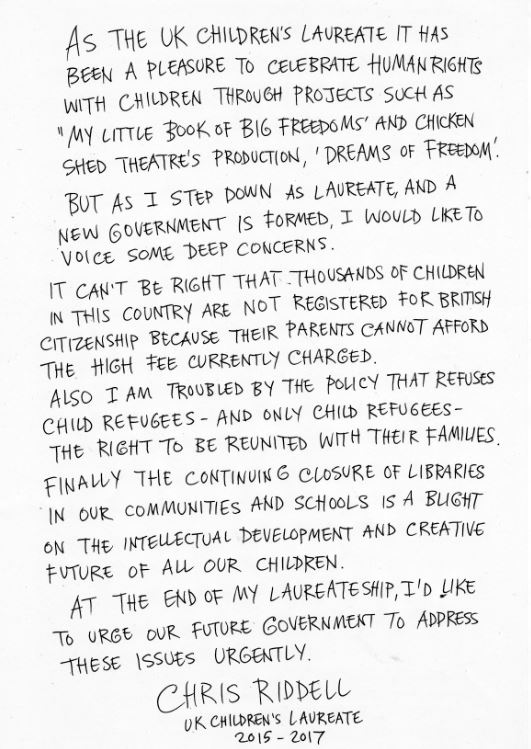 AS THE UK CHILDREN'S LAUREATE IT HAS
BEEN A PLEASURE TO CELEBRATE HUMAN RIGHTS
WITH CHILDREN THROUGH PROJECTS SUCH AS
"MY LITTLE BOOK OF BIG FREEDOMS' AND CHICKEN
SHED THEATRE'S PRODUCTION, 'DREAMS OF FREEDOM'.
BUT AS I STEP DOWN AS LAUREATE, AND A
NEW GOVERNMENT IS FORMED, I WOULD LIKE TO
VOICE SOME DEEP CONCERNS.
IT CAN'T BE RIGHT THAT THOUSANDS OF CHILDREN
IN THIS COUNTRY ARE NOT REGISTERED FOR BRITISH
CITIZENSHIP BECAUSE THEIR PARENTS CANNOT AFFORD
THE HIGH FEE CURRENTLY CHARGED.
ALSO I AM TROUBLED BY THE POLICY THAT REFUSES
CHILD REFUGEES - AND ONLY CHILD REFUGEES -
THE RIGHT TO BE REUNITED WITH THEIR FAMILIES.
FINALLY THE CONTINUING CLOSURE OF LIBRARIES
IN OUR COMMUNITIES AND SCHOOLS IS A BLIGHT
ON THE INTELLECTUAL DEVELOPMENT AND CREATIVE
FUTURE OF ALL OUR CHILDREN.
AT THE END OF MY LAUREATESHIP, I'D LIKE
TO URGE OUR FUTURE GOVERNMENT TO ADDRESS
THESE ISSUES URGENTLY.
CHRIS RIDDELL
UK CHILDREN'S LAUREATE
2015 - 2017